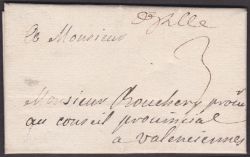 A Monsieur
Monsieur Bouchery
au conseil provincial
a valenciennes